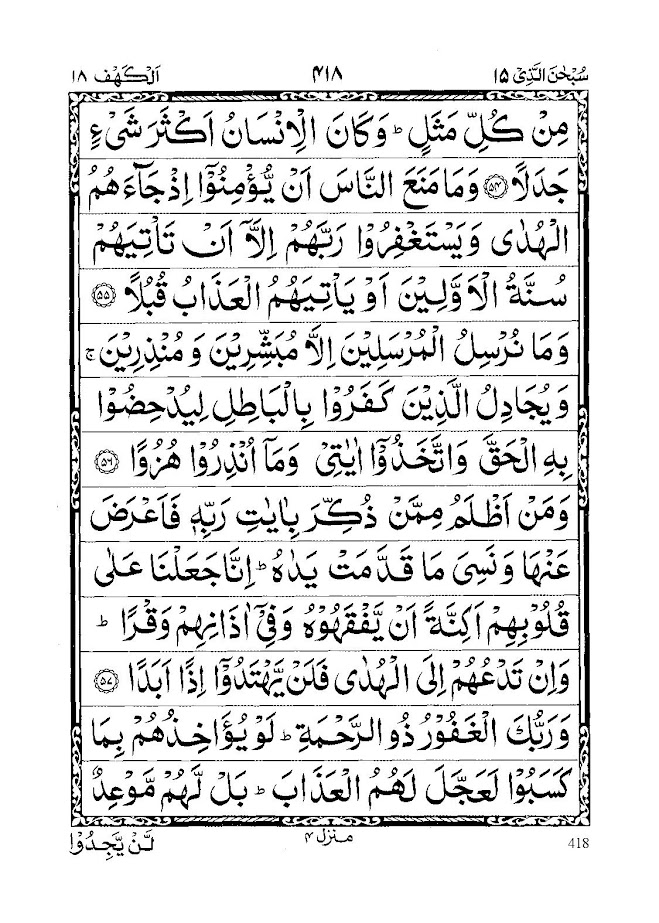 سُبْحٰنَ الَّذِیْۤ ۱۵
۴۱۸
اَلْكَهْف ۱۸
مِنْ كُلِّ مَثَلٍ ؕ وَكَانَ الْاِنْسَانُ اَكْثَرَ شَیْءٍ
جَدَلًا ﴿۵۴﴾ وَمَا مَنَعَ النَّاسَ اَنْ یُّؤْمِنُوْۤا اِذْ جَآءَهُمُ
الْهُدٰى وَیَسْتَغْفِرُوْا رَبَّهُمْ اِلَّاۤ اَنْ تَاْتِیَهُمْ
سُنَّةُ الْاَوَّلِیْنَ اَوْ یَاْتِیَهُمُ الْعَذَابُ قُبُلًا ﴿۵۵﴾
وَمَا نُرْسِلُ الْمُرْسَلِیْنَ اِلَّا مُبَشِّرِیْنَ وَمُنْذِرِیْنَ ۚ
وَیُجَادِلُ الَّذِیْنَ كَفَرُوْا بِالْبَاطِلِ لِیُدْحِضُوْا
بِهِ الْحَقَّ وَاتَّخَذُوْۤا اٰیٰتِیْ وَمَاۤ اُنْذِرُوْا هُزُوًا ﴿۵۶﴾
وَمَنْ اَظْلَمُ مِمَّنْ ذُكِّرَ بِاٰیٰتِ رَبِّهٖ فَاَعْرَضَ
عَنْهَا وَنَسِیَ مَا قَدَّمَتْ یَدٰهُ ؕ اِنَّا جَعَلْنَا عَلٰى
قُلُوْبِهِمْ اَكِنَّةً اَنْ یَّفْقَهُوْهُ وَفِیْۤ اٰذَانِهِمْ وَقْرًا ؕ
وَاِنْ تَدْعُهُمْ اِلَى الْهُدٰى فَلَنْ یَّهْتَدُوْۤا اِذًا اَبَدًا ﴿۵۷﴾
وَرَبُّكَ الْغَفُوْرُ ذُو الرَّحْمَةِ ؕ لَوْ یُؤَاخِذُهُمْ بِمَا
كَسَبُوْا لَعَجَّلَ لَهُمُ الْعَذَابَ ؕ بَلْ لَّهُمْ مَّوْعِدٌ
لَّنْ یَّجِدُوْا
منزل ۴
418